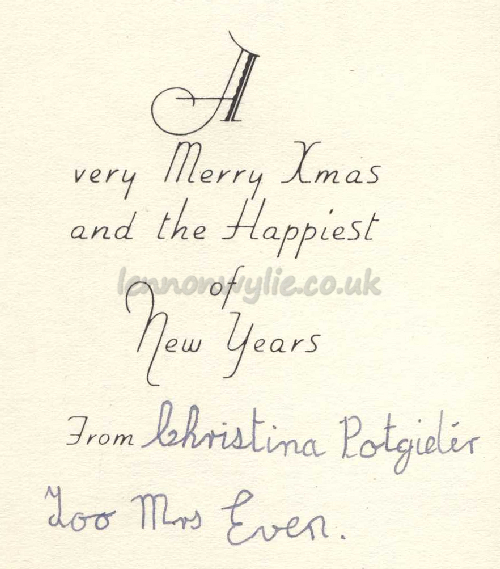 A
very Merry Xmas
and the Happiest
of
lennonwylie.co.uk
New Years
From Christina Potgietér
Too Mrs Even.